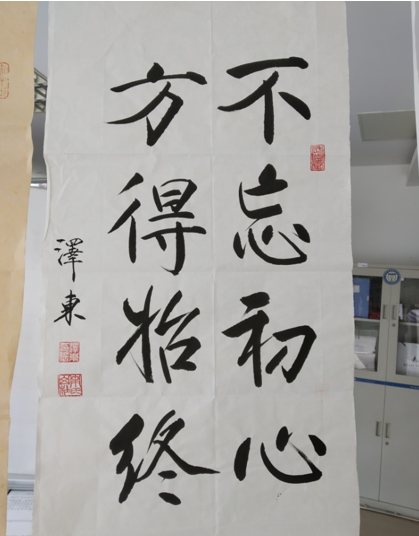 不忘初心
方得始终
澤東